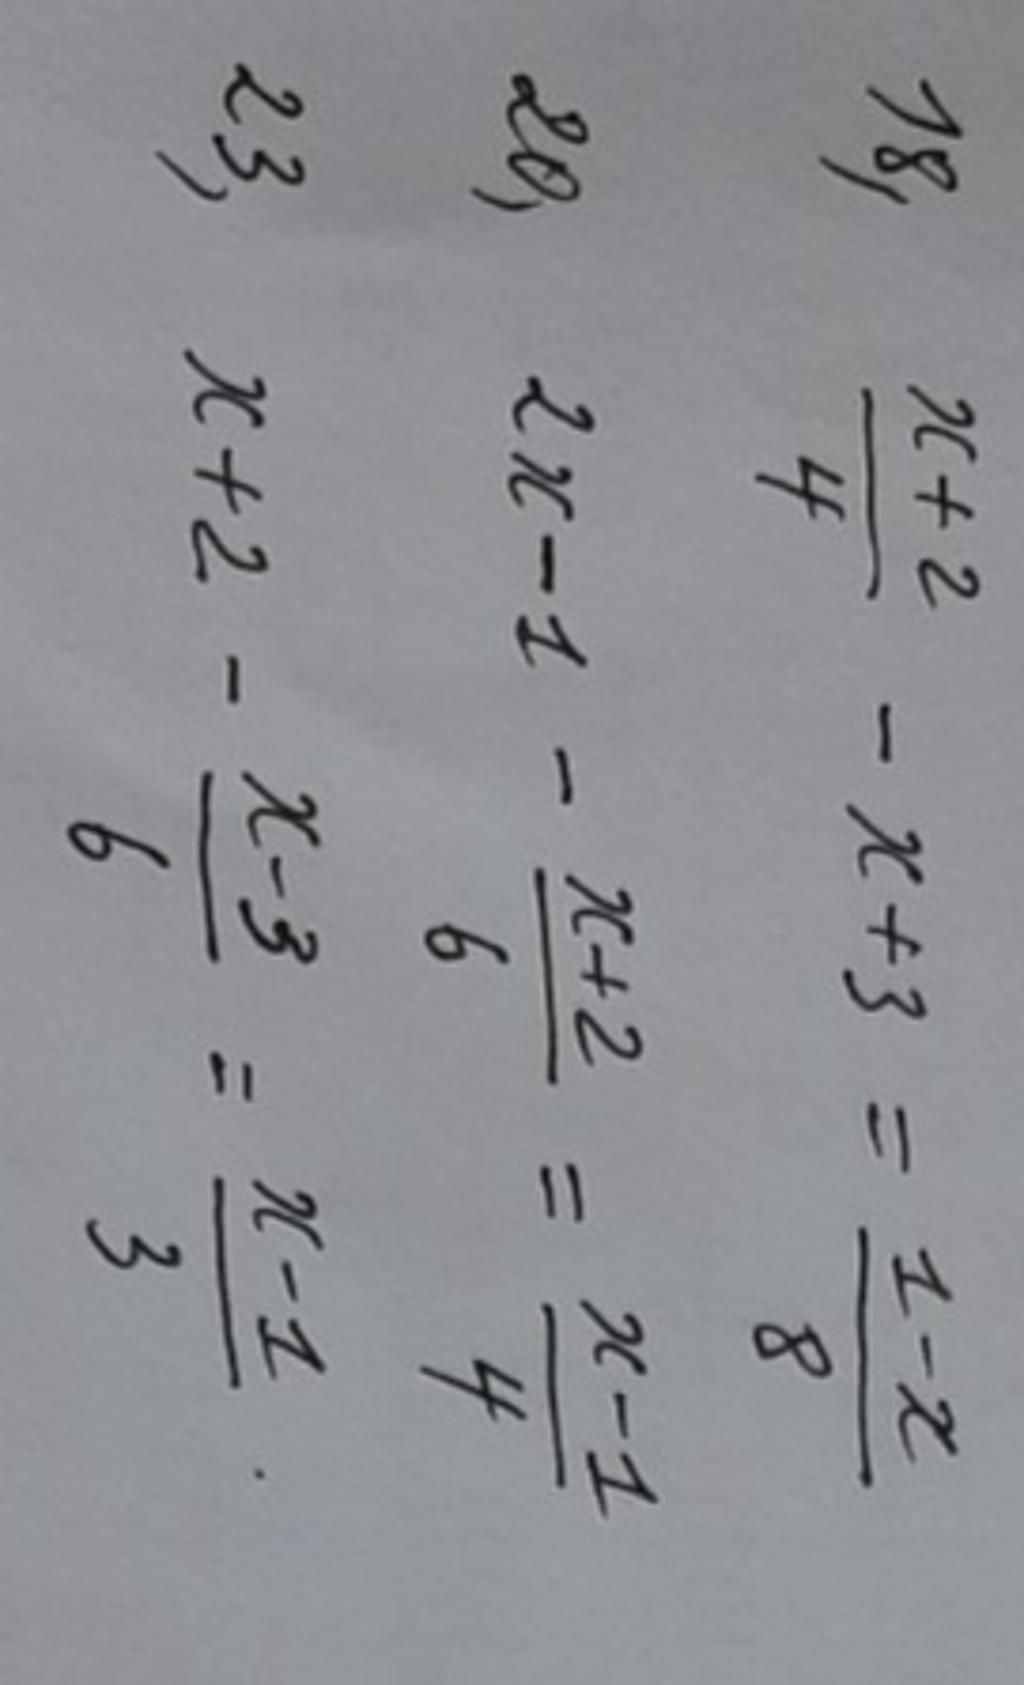 18, x+2/4 - x+3 = 1-x/8
20, 2x-1 - x+2/6 = x-1/4
23, x+2 - x-3/6 = x-1/3